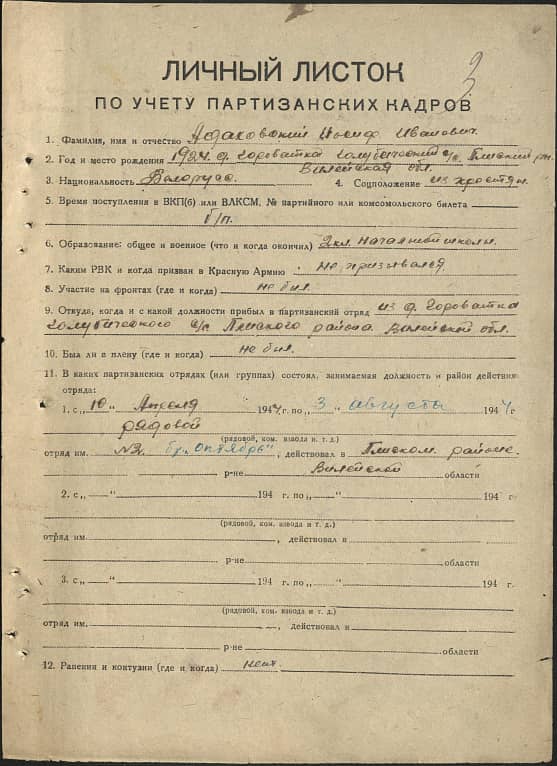 3
ЛИЧНЫЙ ЛИСТОК
ПО УЧЕТУ ПАРТИЗАНСКИХ КАДРОВ
1. Фамилия, имя и отчество Адаховский Иосиф Иванович.
2. Год и место рождения 1924 д. Городатка Голубический с/с. Плиский рн.
Вилейская обл.
3. Национальность Белорусс. 4. Соцположение из крестян.
5. Время поступления в ВКП(б) или ВЛКСМ, № партийного или комсомольского билета
б/п.
6. Образование: общее и военное (что и когда окончил) 2 кл. начальной школы.
7. Каким РВК и когда призван в Красную Армию не призывался.
8. Участие на фронтах (где и когда) не был.
9. Откуда, когда и с какой должности прибыл в партизанский отряд из д.
Голубического с/с Плиского района Вилейской обл.
10. Был ли в плену (где и когда) не был.
11. В каких партизанских отрядах (или группах) состоял, занимаемая должность и район действия
отряда:
1. с „ 10 “ Апреля 1944 г. по „ 3 “ августа 1944 г
рядовой
(рядовой, ком. взвода и т. д.)
отряд им. №2 бр. "Октябрь", действовал в Плиском районе.
р-не Вилейской области
2. с „ “ 194 г. по „ “ 194 г
(рядовой, ком. взвода и т. д.)
отряд им. , действовал в
р-не области
3. с „ “ 194 г. по „ “ 194 г.
(рядовой, ком. взвода и т. д.)
отряд им. , действовал в
р-не области
12. Ранения и контузии (где и когда) нет.